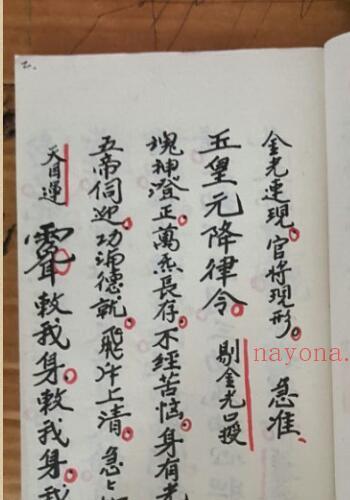 金光速現。官将現形。急准、
五皇元降律令。剔金光口授
塊神澄正萬炁長存。不經苦恼。身有光
五帝伺迎。功滿德就。飛升上清。急々
天目運 敕我身。敕我身。我
nayona.